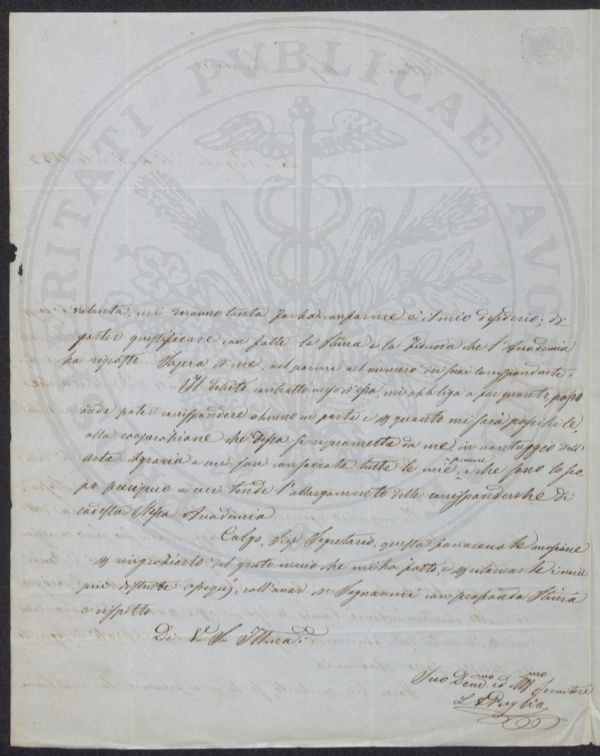 PROSPERITATI PUBLICAE AUG
volontà, mi daranno tanta forza conforme è il mio desiderio; di
poter giustificare con fatti la stima e la fiducia che l'Accademia
ha riposto sopra di me, nel pormi nel numero dei suoi corrispondenti.
Il debito contratto verso d'essa, mi obbliga a far quanto posso
onde poter corrispondere almeno in parte e quanto mi sarà possibile
alla cooperazione che dessa si ripromette da me, in vantaggio dell'
arte Agraria a cui sono consacrate tutte le mie premure, e che sono lo sco
po precipuo a cui tende l'allargamento delle corrispondenze di
codesta stessa Accademia
Colgo, Sig. Segretario, questa favorevole occasione
per ringraziarlo del grato invio che mi ha fatto, e per esternarle i miei
più distinti ossequj, coll'onor di segnarmi con profonda stima
e rispetto
Di V. S. Illma:
Suo Devmo ed Obbmo Servitore
Puglia